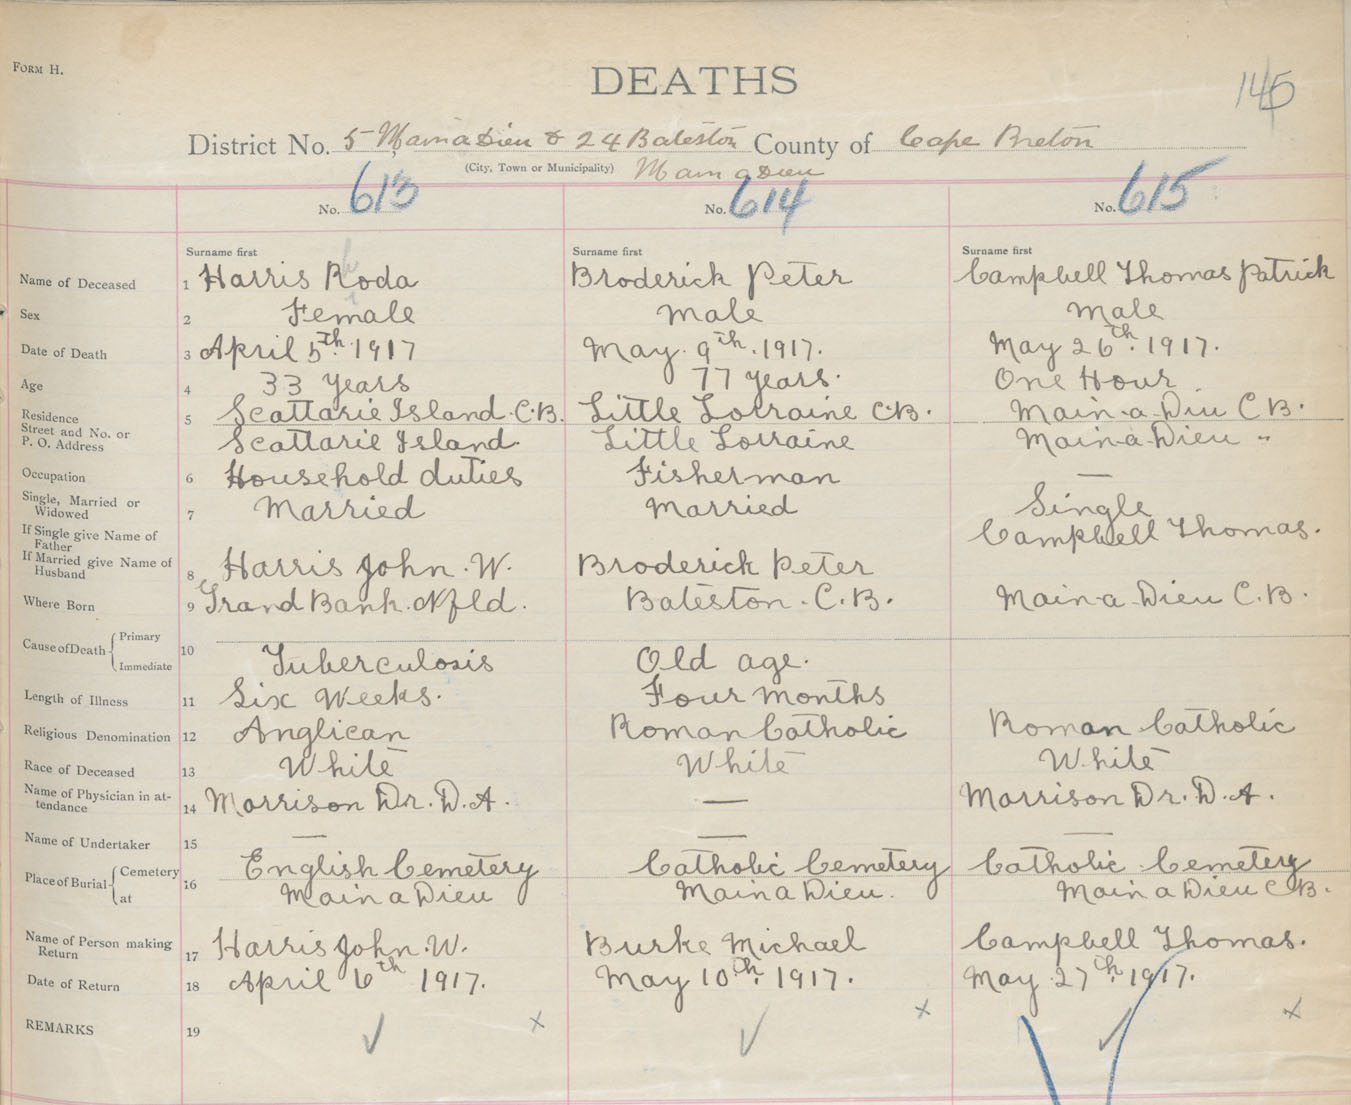 FORM H.
DEATHS
145
District No. 5 Mainadieu & 24 Bateston County of Cape Breton
(City, Town or Municipality) Mainadieu
No. 613 No. 614 No. 615
Surname first Surname first Surname first
Name of Deceased 1 Harris Roda Broderick Peter Campbell Thomas Patrick
Sex 2 Female Male Male
Date of Death 3 April 5th. 1917 May 9th. 1917. May 26th. 1917.
Age 4 33 years 77 years. One Hour
Residence 5 Scattarie Island. C.B. Little Lorraine C.B. Main-a-Diu C.B.
Street and No. or
P. O. Address Scattarie Island Little Lorraine Main-a-Dieu "
Occupation 6 Household duties Fisherman —
Single, Married or
Widowed 7 Married Married Single
If Single give Name of
Father Campbell Thomas.
If Married give Name of
Husband 8 Harris John. W. Broderick Peter
Where Born 9 Grand Bank. Nfld. Bateston. C.B. Main-a-Dieu C.B.
Cause of Death Primary 10
Immediate Tuberculosis Old age.
Length of Illness 11 Six Weeks. Four months
Religious Denomination 12 Anglican Roman Catholic Roman Catholic
Race of Deceased 13 White White White
Name of Physician in at-
tendance 14 Morrison Dr. D.A. — Morrison Dr. D.A.
Name of Undertaker 15 — — —
Place of Burial Cemetery 16 English Cemetery Catholic Cemetery Catholic Cemetery
at Main a Dieu Main a Dieu. Main a Dieu C.B.
Name of Person making
Return 17 Harris John. W. Burke Michael Campbell Thomas.
Date of Return 18 April 6th 1917. May 10th. 1917. May 27th. 1917.
REMARKS 19 ✓ x ✓ x ✓ x